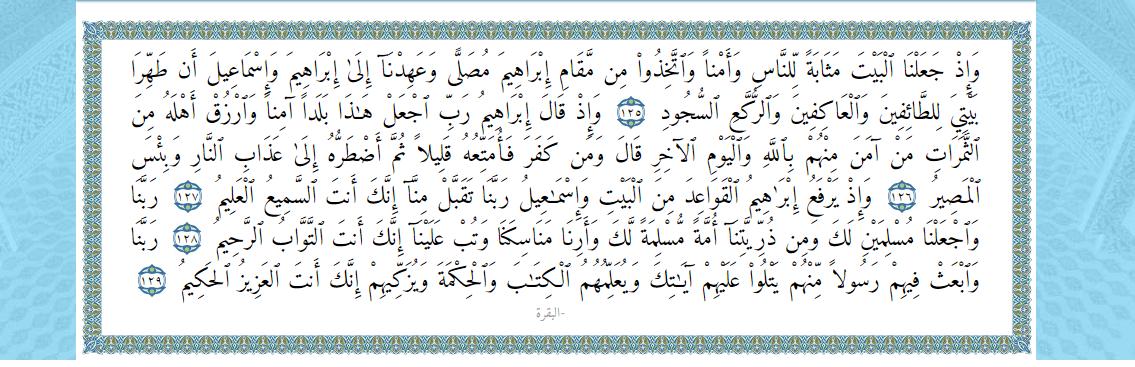 وَإِذْ جَعَلْنَا ٱلْبَيْتَ مَثَابَةً لِّلنَّاسِ وَأَمْناً وَٱتَّخِذُواْ مِن مَّقَامِ إِبْرَاهِيمَ مُصَلًّى وَعَهِدْنَآ إِلَىٰ إِبْرَاهِيمَ وَإِسْمَاعِيلَ أَن طَهِّرَا
بَيْتِيَ لِلطَّائِفِينَ وَٱلْعَاكِفِينَ وَٱلرُّكَّعِ ٱلسُّجُودِ ١٢٥ وَإِذْ قَالَ إِبْرَاهِيمُ رَبِّ ٱجْعَلْ هَـٰذَا بَلَداً آمِناً وَٱرْزُقْ أَهْلَهُ مِنَ
ٱلثَّمَرَاتِ مَنْ آمَنَ مِنْهُمْ بِٱللَّهِ وَٱلْيَوْمِ ٱلآخِرِ قَالَ وَمَن كَفَرَ فَأُمَتِّعُهُ قَلِيلاً ثُمَّ أَضْطَرُّهُ إِلَىٰ عَذَابِ ٱلنَّارِ وَبِئْسَ
ٱلْمَصِيرُ ١٢٦ وَإِذْ يَرْفَعُ إِبْرَٰهِيمُ ٱلْقَوَاعِدَ مِنَ ٱلْبَيْتِ وَإِسْمَـٰعِيلُ رَبَّنَا تَقَبَّلْ مِنَّآ إِنَّكَ أَنتَ ٱلسَّمِيعُ ٱلْعَلِيمُ ١٢٧ رَبَّنَا
وَٱجْعَلْنَا مُسْلِمَيْنِ لَكَ وَمِن ذُرِّيَّتِنَآ أُمَّةً مُّسْلِمَةً لَّكَ وَأَرِنَا مَنَاسِكَنَا وَتُبْ عَلَيْنَآ إِنَّكَ أَنتَ ٱلتَّوَّابُ ٱلرَّحِيمُ ١٢٨ رَبَّنَا
وَٱبْعَثْ فِيهِمْ رَسُولاً مِّنْهُمْ يَتْلُواْ عَلَيْهِمْ آيَـٰتِكَ وَيُعَلِّمُهُمُ ٱلْكِتَـٰبَ وَٱلْحِكْمَةَ وَيُزَكِّيهِمْ إِنَّكَ أَنتَ ٱلعَزِيزُ ٱلحَكِيمُ ١٢٩
-البقرة